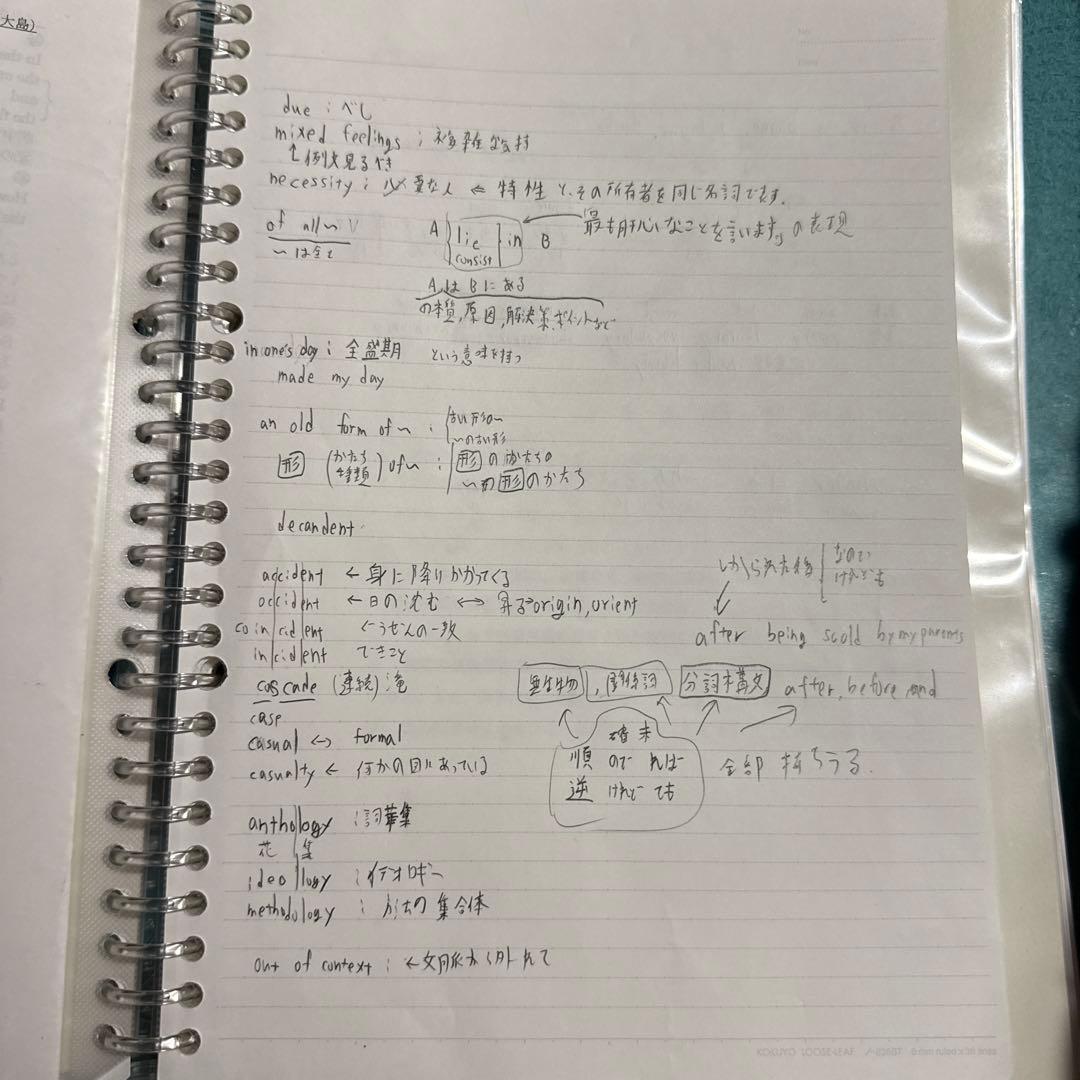 大島)
due : べし
mixed feelings ; 複雑な気持
↑例文見るべき
necessity : 必要な人 ← 特性と、その所有者を同じ名詞です。
of all 〜 V
〜は全て
A { lie consist } in B ← 最も肝心なことを言います。の表現
A は B にある
の本質,原因,解決策,ポイントなど
in one's day ; 全盛期 という意味を持つ
made my day
an old form of 〜 : { 古い形の〜
〜の古い形
形 (かたち 種類) of 〜 : 形のかたちの
〜の形のかたち
decandent
accident ← 身に降りかかってくる
occident ← 日の沈む ↔ 昇る→origin, orient
co in cident ← ぐうぜんの一致
incident できこと
cascade (連続) 滝
case
casual ↔ formal
casualty ← 何かの目にあっている
anthology ; 詞華集
花 集
ideology ; イデオロギー
methodology ; 方法の集合体
out of context : ← 文脈から外れて
しかられた後 なので
けれども
↓
after being scold by my parents
無生物 , 関係詞 分詞構文 after, before, and
確 未
順 ので れば
逆 けれど ても
全部 持ちうる.
KOKUYO LOOSE-LEAF